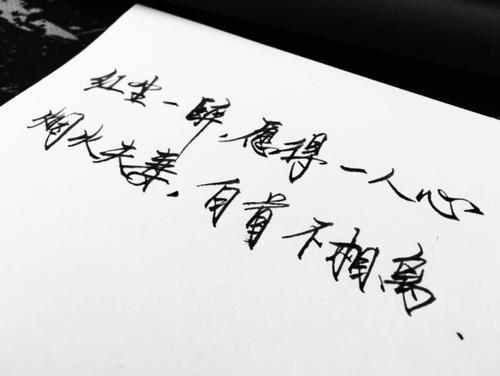 红尘一醉，愿得一人心
烟火夫妻，白首不相离.